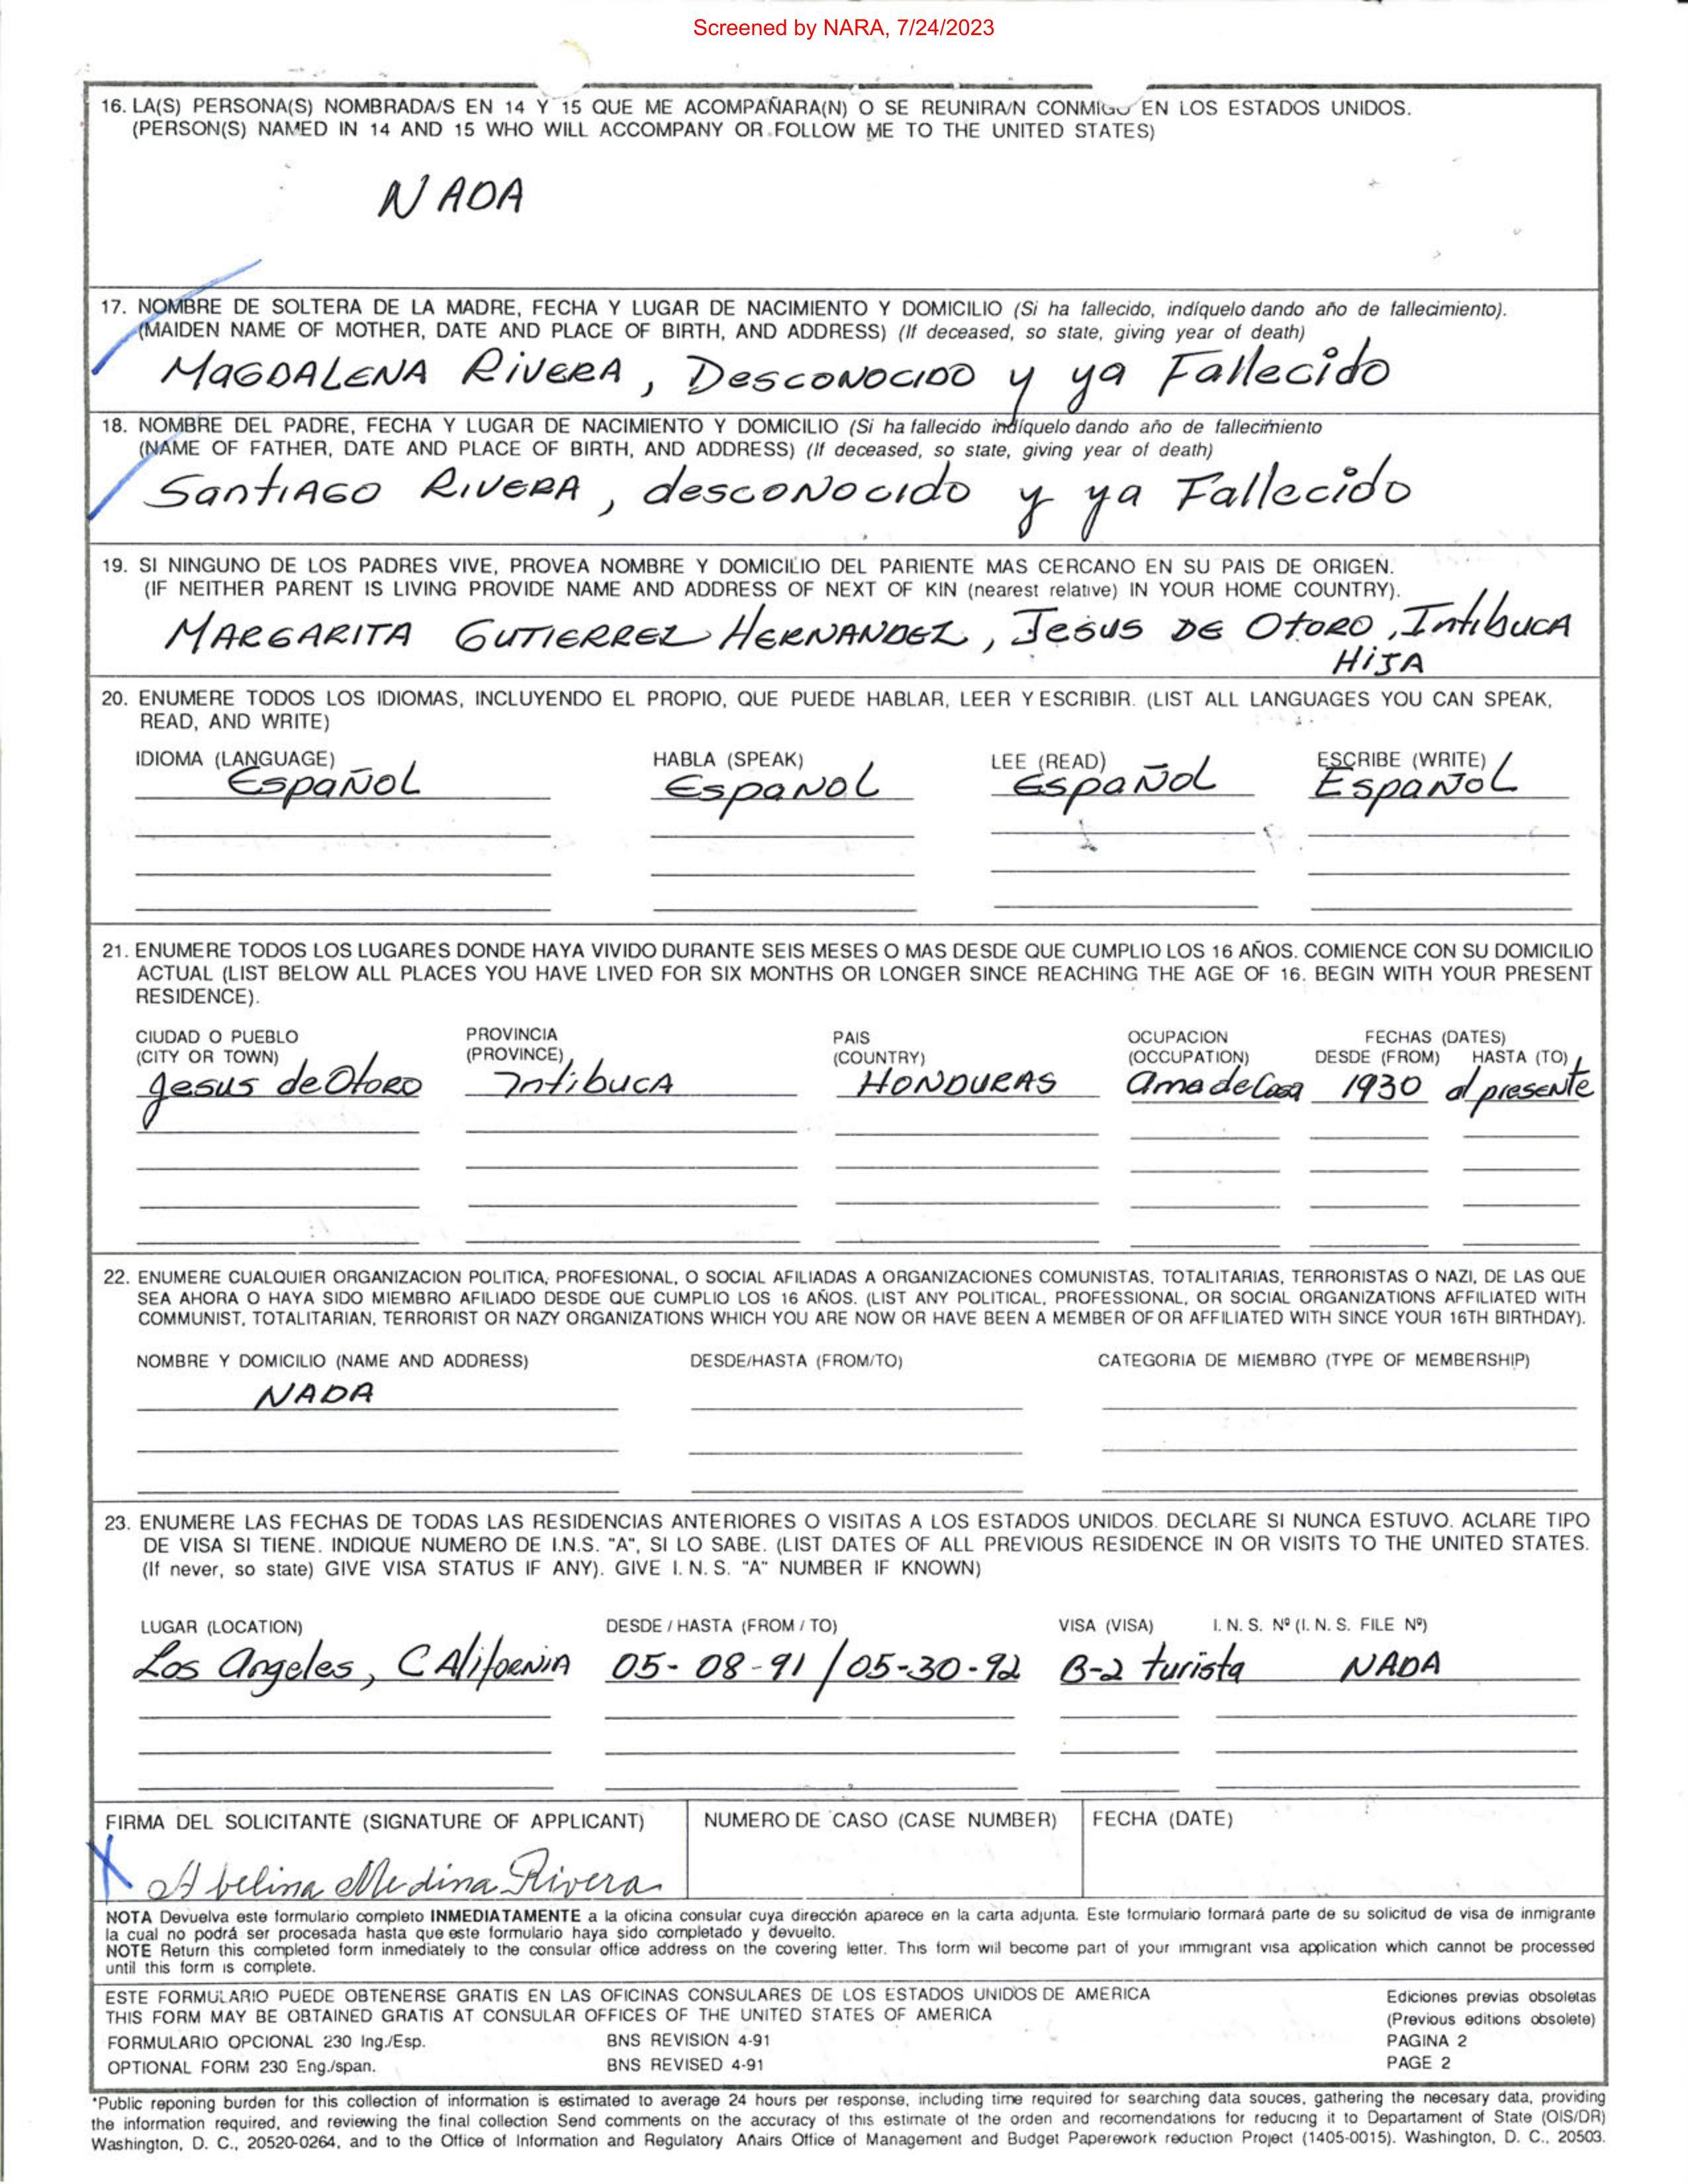 Screened by NARA, 7/24/2023
16. LA(S) PERSONA(S) NOMBRADA/S EN 14 Y 15 QUE ME ACOMPAÑARA(N) O SE REUNIRA/N CONMIGO EN LOS ESTADOS UNIDOS.
(PERSON(S) NAMED IN 14 AND 15 WHO WILL ACCOMPANY OR FOLLOW ME TO THE UNITED STATES)
NADA
17. NOMBRE DE SOLTERA DE LA MADRE, FECHA Y LUGAR DE NACIMIENTO Y DOMICILIO (Si ha fallecido, indíquelo dando año de fallecimiento).
(MAIDEN NAME OF MOTHER, DATE AND PLACE OF BIRTH, AND ADDRESS) (If deceased, so state, giving year of death)
MAGDALENA RiVERA, DESCONOCIDO y ya Fallecido
18. NOMBRE DEL PADRE, FECHA Y LUGAR DE NACIMIENTO Y DOMICILIO (Si ha fallecido indíquelo dando año de fallecimiento
(NAME OF FATHER, DATE AND PLACE OF BIRTH, AND ADDRESS) (If deceased, so state, giving year of death)
SantiAGO RIVERA, desconocido y ya Fallecido
19. SI NINGUNO DE LOS PADRES VIVE, PROVEA NOMBRE Y DOMICILIO DEL PARIENTE MAS CERCANO EN SU PAIS DE ORIGEN.
(IF NEITHER PARENT IS LIVING PROVIDE NAME AND ADDRESS OF NEXT OF KIN (nearest relative) IN YOUR HOME COUNTRY).
MARGARITA GUTIERREZ HERNANDEZ, Jesus DE OtORO, IntibucA
HiJA
20. ENUMERE TODOS LOS IDIOMAS, INCLUYENDO EL PROPIO, QUE PUEDE HABLAR, LEER Y ESCRIBIR. (LIST ALL LANGUAGES YOU CAN SPEAK,
READ, AND WRITE)
IDIOMA (LANGUAGE) HABLA (SPEAK) LEE (READ) ESCRIBE (WRITE)
EspañoL EspanoL EspañoL EspañoL
21. ENUMERE TODOS LOS LUGARES DONDE HAYA VIVIDO DURANTE SEIS MESES O MAS DESDE QUE CUMPLIO LOS 16 AÑOS. COMIENCE CON SU DOMICILIO
ACTUAL (LIST BELOW ALL PLACES YOU HAVE LIVED FOR SIX MONTHS OR LONGER SINCE REACHING THE AGE OF 16. BEGIN WITH YOUR PRESENT
RESIDENCE).
CIUDAD O PUEBLO PROVINCIA PAIS OCUPACION FECHAS (DATES)
(CITY OR TOWN) (PROVINCE) (COUNTRY) (OCCUPATION) DESDE (FROM) HASTA (TO)
Jesus de OtoRO IntibucA HONDURAS Ama de Casa 1930 al presente
22. ENUMERE CUALQUIER ORGANIZACION POLITICA, PROFESIONAL, O SOCIAL AFILIADAS A ORGANIZACIONES COMUNISTAS, TOTALITARIAS, TERRORISTAS O NAZI, DE LAS QUE
SEA AHORA O HAYA SIDO MIEMBRO AFILIADO DESDE QUE CUMPLIO LOS 16 AÑOS. (LIST ANY POLITICAL, PROFESSIONAL, OR SOCIAL ORGANIZATIONS AFFILIATED WITH
COMMUNIST, TOTALITARIAN, TERRORIST OR NAZY ORGANIZATIONS WHICH YOU ARE NOW OR HAVE BEEN A MEMBER OF OR AFFILIATED WITH SINCE YOUR 16TH BIRTHDAY).
NOMBRE Y DOMICILIO (NAME AND ADDRESS) DESDE/HASTA (FROM/TO) CATEGORIA DE MIEMBRO (TYPE OF MEMBERSHIP)
NADA
23. ENUMERE LAS FECHAS DE TODAS LAS RESIDENCIAS ANTERIORES O VISITAS A LOS ESTADOS UNIDOS. DECLARE SI NUNCA ESTUVO. ACLARE TIPO
DE VISA SI TIENE. INDIQUE NUMERO DE I.N.S. "A", SI LO SABE. (LIST DATES OF ALL PREVIOUS RESIDENCE IN OR VISITS TO THE UNITED STATES.
(If never, so state) GIVE VISA STATUS IF ANY). GIVE I. N. S. "A" NUMBER IF KNOWN)
LUGAR (LOCATION) DESDE / HASTA (FROM / TO) VISA (VISA) I. N. S. Nº (I. N. S. FILE Nº)
Los Angeles, CAlifoRNiA 05-08-91/05-30-92 B-2 turista NADA
FIRMA DEL SOLICITANTE (SIGNATURE OF APPLICANT) NUMERO DE CASO (CASE NUMBER) FECHA (DATE)
X Abelina Medina Rivera
NOTA Devuelva este formulario completo INMEDIATAMENTE a la oficina consular cuya dirección aparece en la carta adjunta. Este formulario formará parte de su solicitud de visa de inmigrante
la cual no podrá ser procesada hasta que este formulario haya sido completado y devuelto.
NOTE Return this completed form inmediately to the consular office address on the covering letter. This form will become part of your immigrant visa application which cannot be processed
until this form is complete.
ESTE FORMULARIO PUEDE OBTENERSE GRATIS EN LAS OFICINAS CONSULARES DE LOS ESTADOS UNIDOS DE AMERICA Ediciones previas obsoletas
THIS FORM MAY BE OBTAINED GRATIS AT CONSULAR OFFICES OF THE UNITED STATES OF AMERICA (Previous editions obsolete)
FORMULARIO OPCIONAL 230 Ing./Esp. BNS REVISION 4-91 PAGINA 2
OPTIONAL FORM 230 Eng./span. BNS REVISED 4-91 PAGE 2
*Public reponing burden for this collection of information is estimated to average 24 hours per response, including time required for searching data souces, gathering the necesary data, providing
the information required, and reviewing the final collection Send comments on the accuracy of this estimate of the orden and recomendations for reducing it to Departament of State (OIS/DR)
Washington, D. C., 20520-0264, and to the Office of Information and Regulatory Affairs Office of Management and Budget Paperework reduction Project (1405-0015). Washington, D. C., 20503.